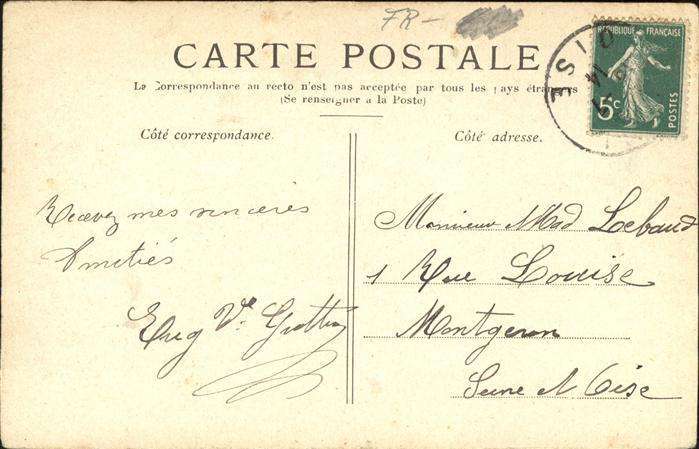 FR-
CARTE POSTALE
La Correspondance au recto n'est pas acceptée par tous les pays étrangers
(Se renseigner à la Poste)
Côté correspondance.
Recevez mes sincères
Amitiés
Eug Ve
Côté adresse.
Monsieur Mad Lebaud
1 Rue Louise
Montgeron
Seine et Oise
REPUBLIQUE FRANÇAISE
5c
POSTES
OISE